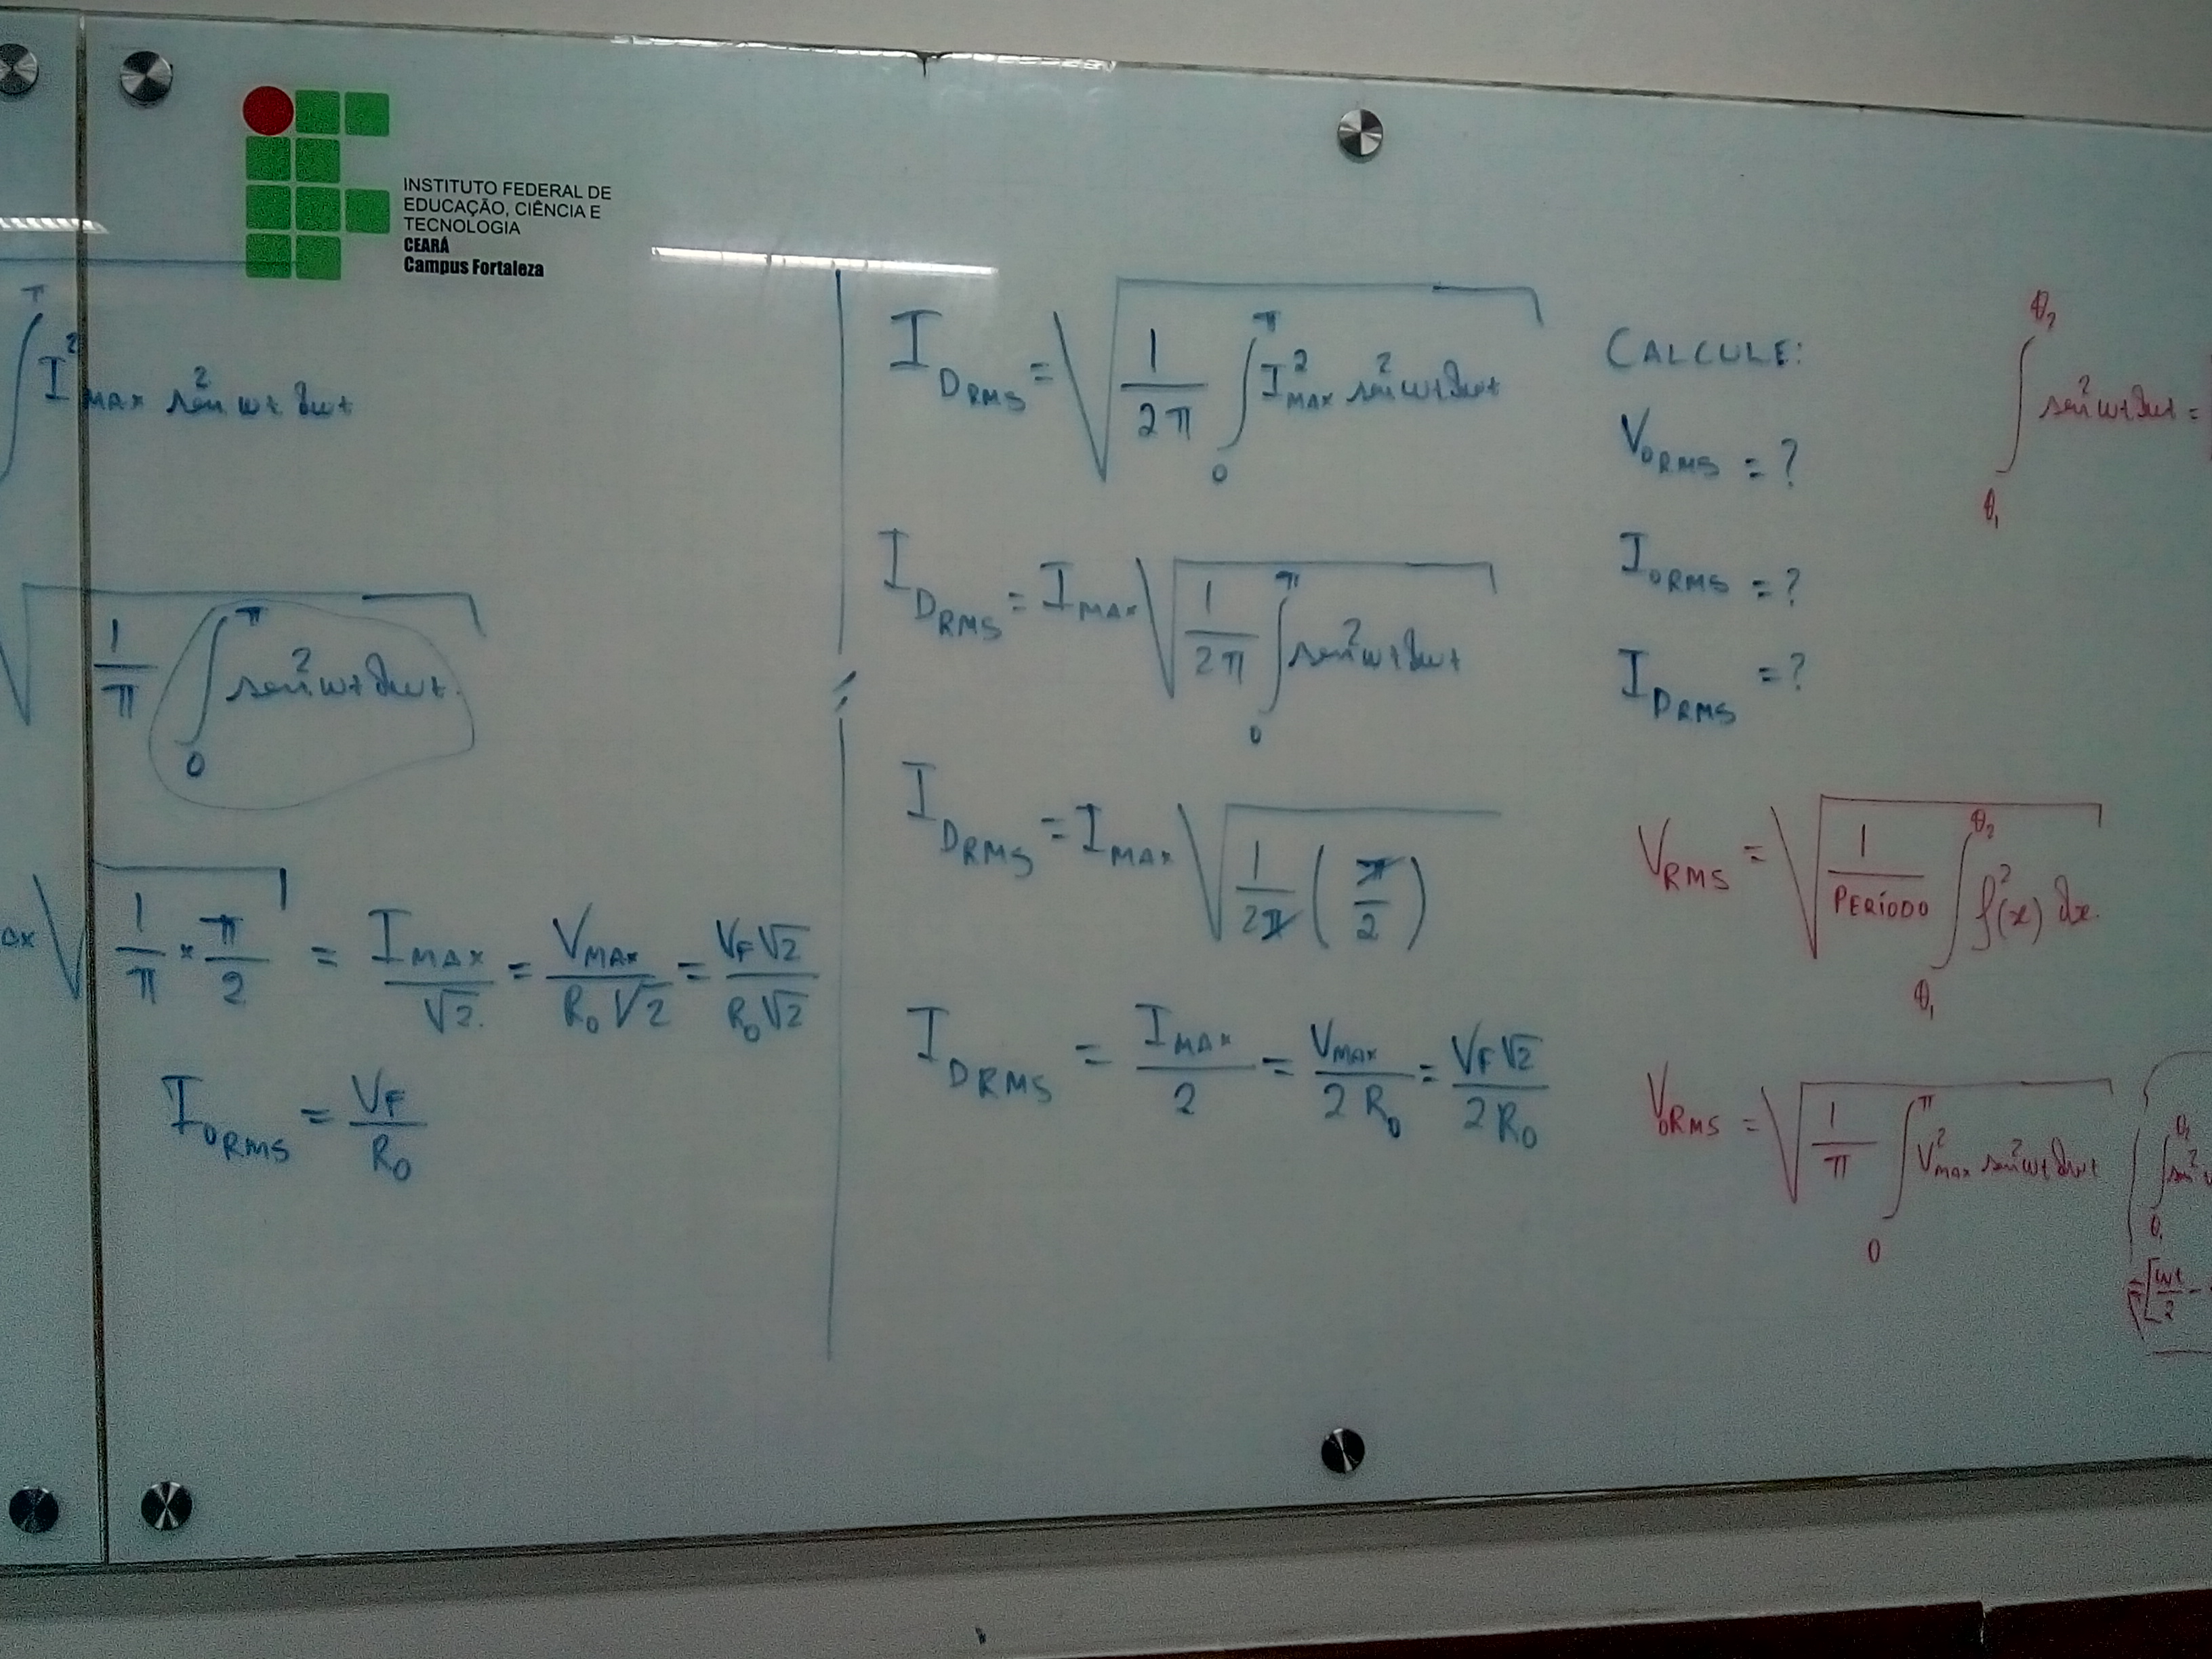 INSTITUTO FEDERAL DE
EDUCAÇÃO, CIÊNCIA E
TECNOLOGIA
CEARÁ
Campus Fortaleza
∫ π I² MAX sen² wt dwt
√ 1/π ∫ 0 π sen² wt dwt
√ 1/π × π/2 = I MAX/√2 = V MAX/R0 √2 = VF √2/R0 √2
I0RMS = VF/R0
IDRMS = √ 1/2π ∫ 0 π I² MAX sen² wt dwt
IDRMS = IMAX √ 1/2π ∫ 0 π sen² wt dwt
IDRMS = IMAX √ 1/2π (π/2)
IDRMS = IMAX/2 = VMAX/2 R0 = VF √2/2 R0
CALCULE:
V0RMS = ?
I0RMS = ?
IDRMS = ?
∫ θ1 θ2 sen² wt dwt =
VRMS = √ 1/PERÍODO ∫ θ1 θ2 f²(x) dx.
V0RMS = √ 1/π ∫ 0 π V² MAX sen² wt dwt
∫ θ1 θ2 sen²
= [wt/2 -